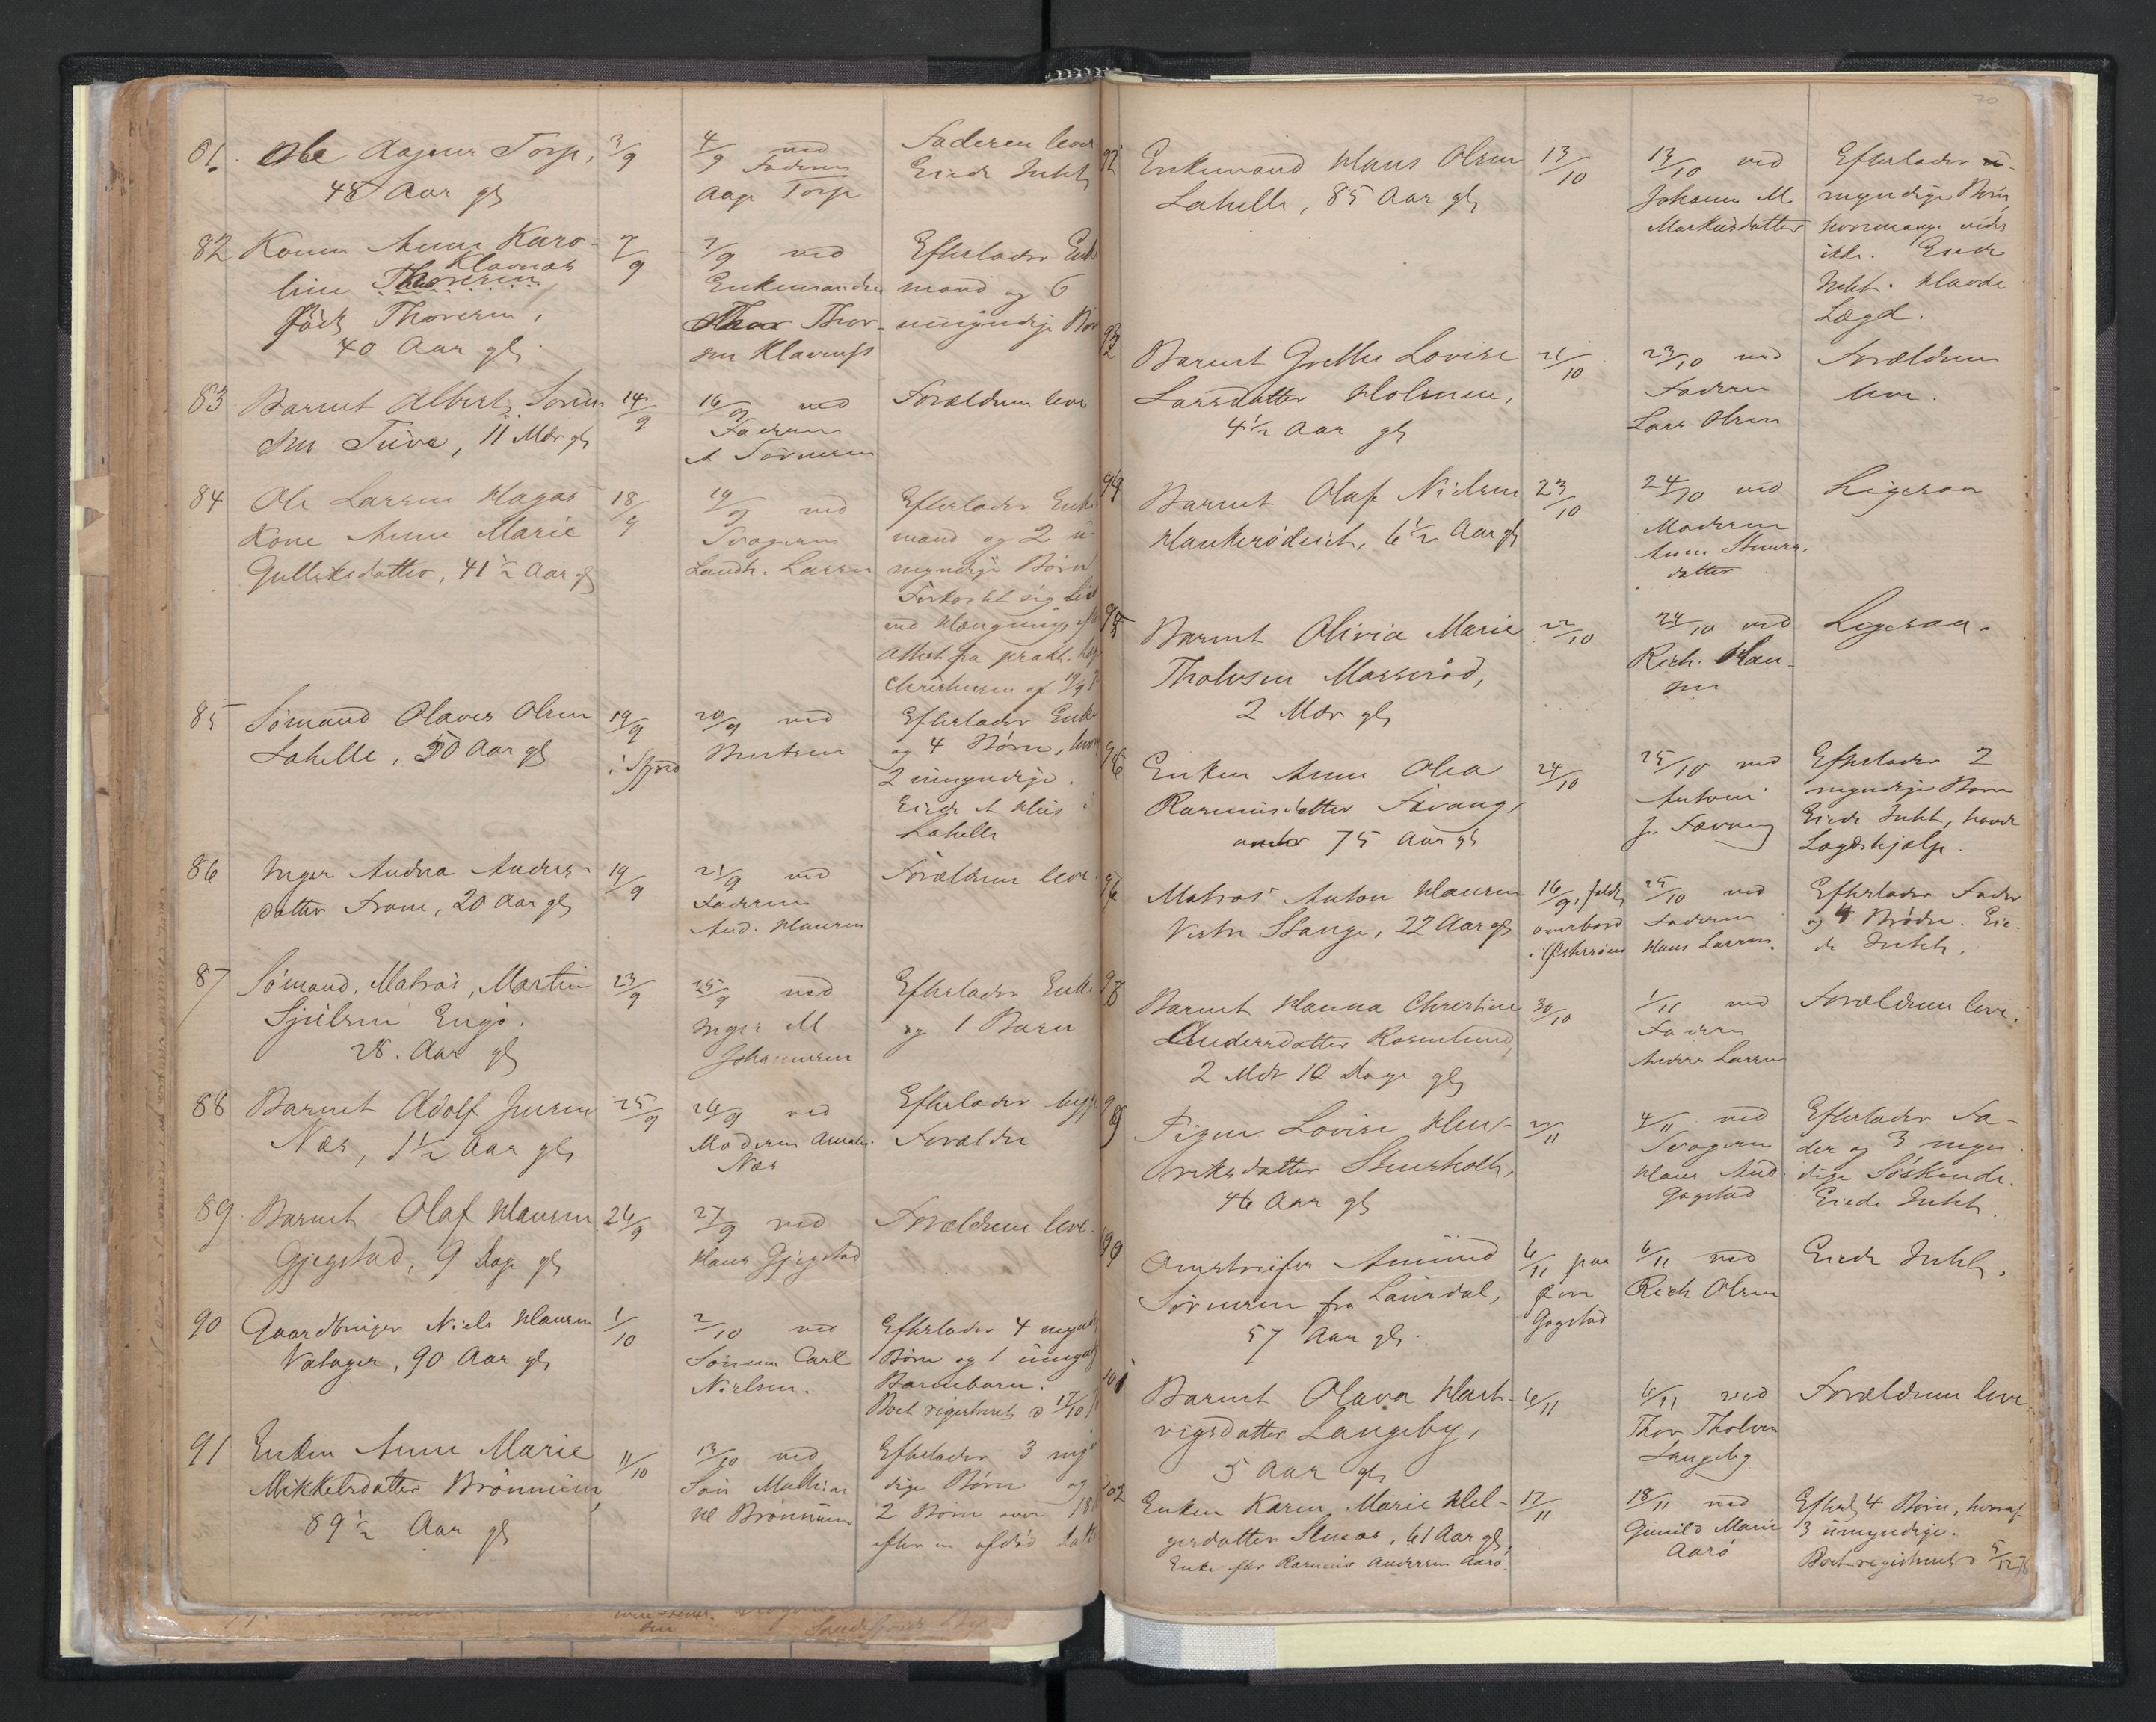 81. Ole Aagesen Torp, 3/9 4/9 ved Faderen lever
48 Aar gl Faderen Eiede Intet
Aage Torp
82 Konen Anne Karo- 7/9 7/9 ved Efterlader Enke
line Thoresen Klavnæs Enkemanden mand og 6
født Thoresen, Thor Thor- umyndige Børn
40 Aar gl. sen Klavnæs
83 Barnet Albert Søren- 14/9 16/9 ved Forældrene leve
sen Tuve, 11 Mdr gl Faderen
A Sørensen
84 Ole Larsen Hagas 18/9 19/9 ved Efterlader Enke
Kone Anne Marie Svogeren mand og 2 u-
Gulliksdatter, 41½ Aar gl Larsen myndige Børn
Forkortet sig Livet
ved Hængning eft
Attest fra prakt. Læge
Christensen af 19/9
85 Sømand Olaves Olsen 19/9 20/9 ved Efterlader Enke
Lahelle, 50 Aar gl i Sjøen og 4 Børn, hvoraf
2 umyndige.
Eiede et Huus i
Lahelle
86 Inger Andrea Anders- 19/9 21/9 ved Forældrene leve.
datter Fram, 20 Aar gl Faderen
And. Hansen
87 Sømand, Matros, Martin 23/9 25/9 ved Efterlader Enke
Sjulsen Engø. Inger M og 1 Barn
28. Aar gl Johannesen
88 Barnet Adolf Jensen 25/9 26/9 ved Efterlader begge
Næs, 1½ Aar gl Moderen Amalie Forældre
Næs
89. Barnet Olaf Hansen 26/9 27/9 ved Forældrene leve.
Gjegstad, 9 Dage gl Hans Gjegstad
90 Gaardbruger Niels Hansen 1/10 2/10 ved Efterlader 4 mynd
Valager, 90 Aar gl Sønnen Carl Børn og 1 umyndig
Nielsen. Barnebarn.
Boet registreret d 17/10
91 Enken Anne Marie 11/10 13/10 ved Efterlader 3 myn
Mikkelsdatter Brønnum, Søn Mathias dige Børn og
89½ Aar gl Brønnum 2 Børn over 18
efter en afdød Datter
92 Enkemand Hans Olsen 13/10 13/10 ved Efterlader u-
Lahelle, 85 Aar gl Johanne M myndige Børn,
Markusdatter hvormange vides
ikke. Eiede
Intet. Havde
Lægd.
93 Barnet Grethe Lovise 21/10 23/10 ved Forældrene
Larsdatter Holmene, Faderen leve.
4½ Aar gl Lars Olsen
94 Barnet Olaf Nielsen 23/10 24/10 ved Ligesaa
Haukerødeiet, 6½ Aar gl Moderen
Anne
datter
95 Barnet Olivia Marie 22/10 24/10 ved Ligesaa.
Tholvsen Masserød, Rich. Han-
2 Mdr gl sen
96 Enken Anne Olea 24/10 25/10 ved Efterlader 2
Rasmusdatter Fævang, Antoni myndige Børn
75 Aar gl J. Fævang Eiede Intet, havde
Lægdshjælp.
97 Matros Anton Hansen 16/9, faldt 25/10 ved Efterlader Fader
Vestre Stange, 22 Aar gl overbord Faderen og 4 Brødre. Eie-
i Østersøen Hans Larsen. de Intet.
98 Barnet Hanna Christine 30/10 1/11 ved Forældrene leve.
Andersdatter Rosenlund, Faderen
2 Mdr 10 Dage gl Anders Larsen
99 Pigen Lovise Hen- 2/11 4/11 ved Efterlader Fa-
riksdatter Stensholt, Svogeren der og 3 myn-
46 Aar gl Hans And. dige Søskende.
Gogstad Eiede Intet.
Omstreifer Amund 6/11 paa 6/11 ved Eiede Intet.
Sørensen fra Laurdal, Øvre Rich Olsen
57 Aar gl. Gogstad
101 Barnet Olava Hart- 6/11 6/11 ved Forældrene leve
vigsdatter Langeby, Thor Tholvsen
5 Aar gl Langeby
102 Enken Karen Marie Hel- 17/11 18/11 ved Efterl 4 Børn, hvoraf
gesdatter 61 Aar gl, Gunild Marie 3 umyndige.
Enke efter Rasmus Andersen Aarø. Aarø Boet registreret d 5/12